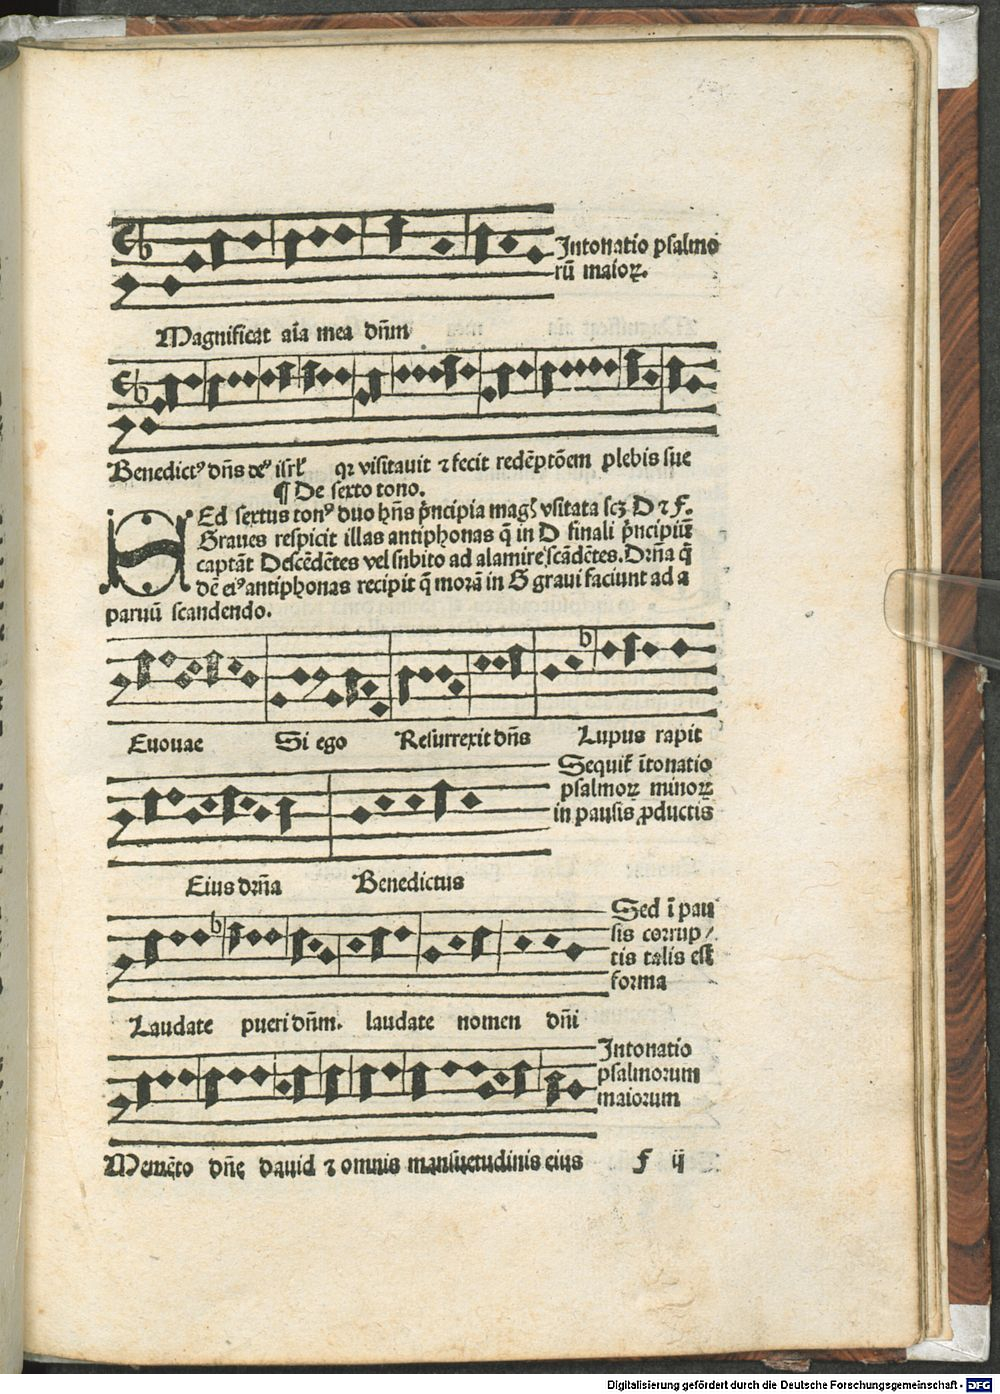 Intonatio psalmo
rū maioꝝ.
Magnificat aīa mea dn̄m
Benedictꝰ dn̄s deꝰ isrl̓ qꝛ visitauit ⁊ fecit redēptōem plebis sue
¶ De sexto tono.
SEd sextus tonꝰ duo hn̄s pͥncipia mag̓ vsitata scꝫ D ⁊ F.
Graues respicit illas antiphonas q̄ in D finali pͥncipiū
captāt Descēdētes vel subito ad alamire scādētes. Drn̄a q̄
dē eiꝰ antiphonas recipit q̄ morā in G graui faciunt ad a
paruū scandendo.
Euouae Si ego Resurrexit dn̄s Lupus rapit
Sequit̄ ītonatio
psalmoꝝ minoꝝ
in pausis ꝓductis
Eius drn̄a Benedictus
Sed ī pau
sis corrup/
tis talis est
forma
Laudate pueri dn̄m. laudate nomen dn̄i
Intonatio
psalmorum
maiorum
Memēto dn̄e dauid ⁊ omnis mansuetudinis eius f ij
Digitalisierung gefördert durch die Deutsche Forschungsgemeinschaft - DFG